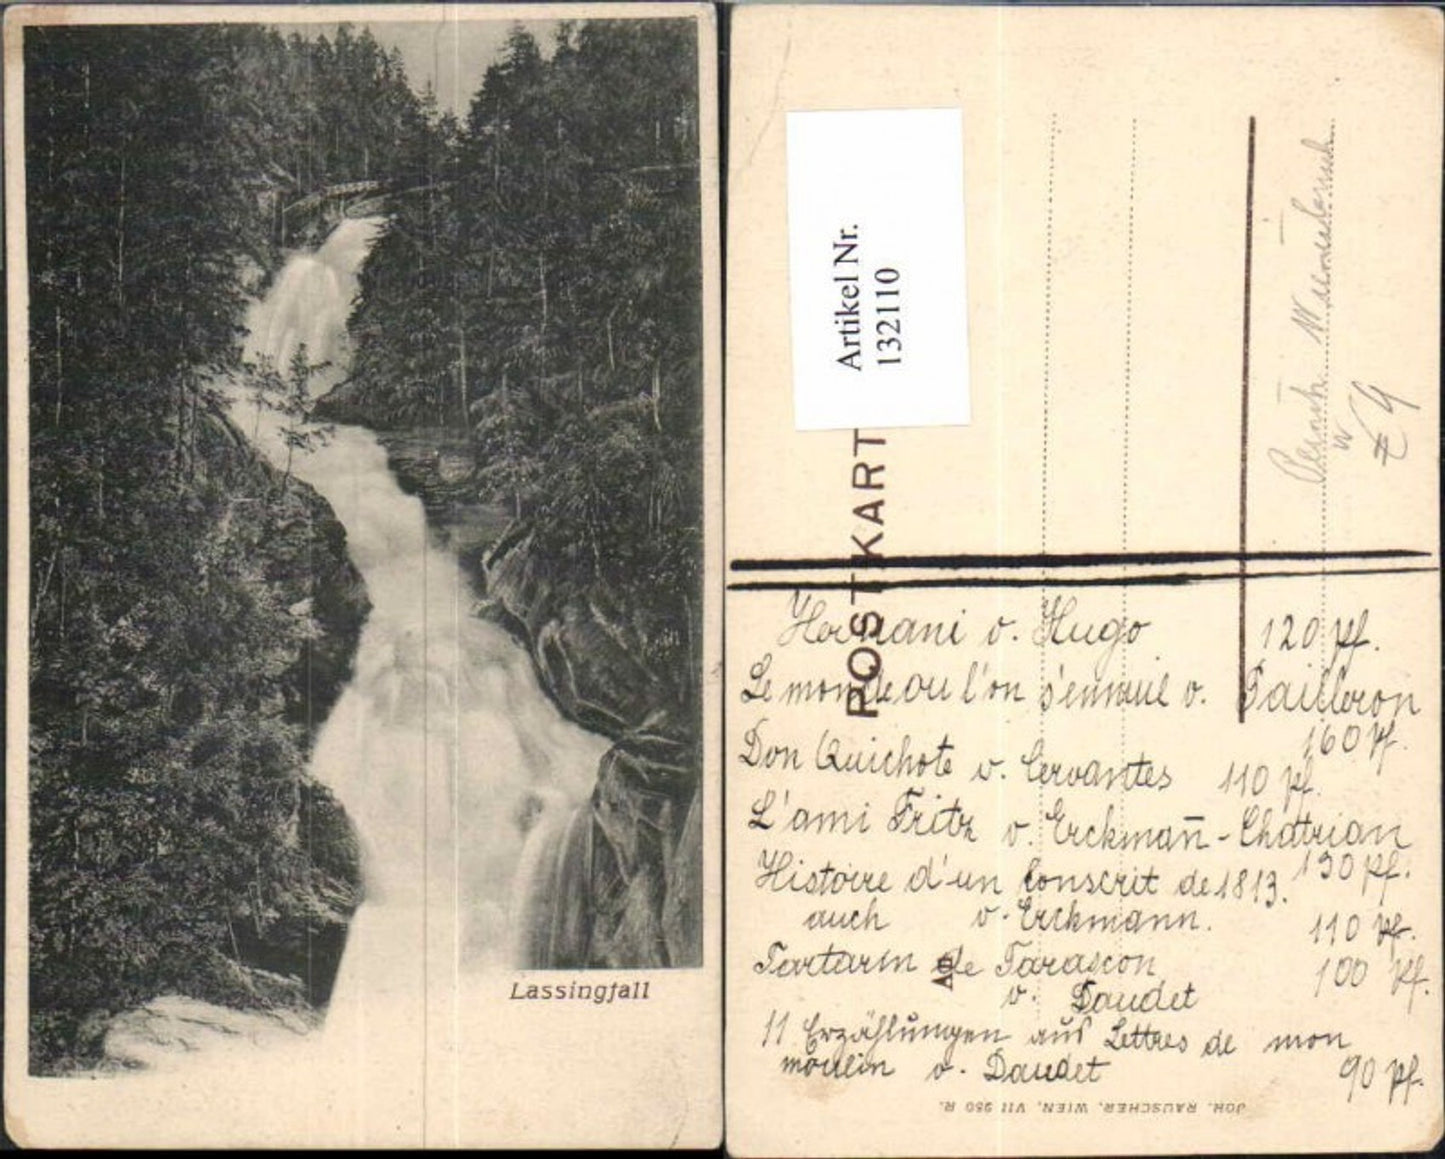 Lassingfall
Artikel Nr.
132110
POSTKART
€ 9
Hernani v. Hugo 120 pf.
Le monde ou l'on s'ennuie v. Pailleron
160 pf.
Don Quichote v. Cervantes 110 pf.
L'ami Fritz v. Erckmañ-Chatrian
130 pf.
Histoire d'un conscrit de 1813.
auch v. Erckmann. 110 pf.
Tartarin de Tarascon 100 pf.
v. Daudet
11 Erzählungen aus Lettres de mon
moulin v. Daudet 90 pf.
JOH. RAUSCHER, WIEN, VII 950 R.